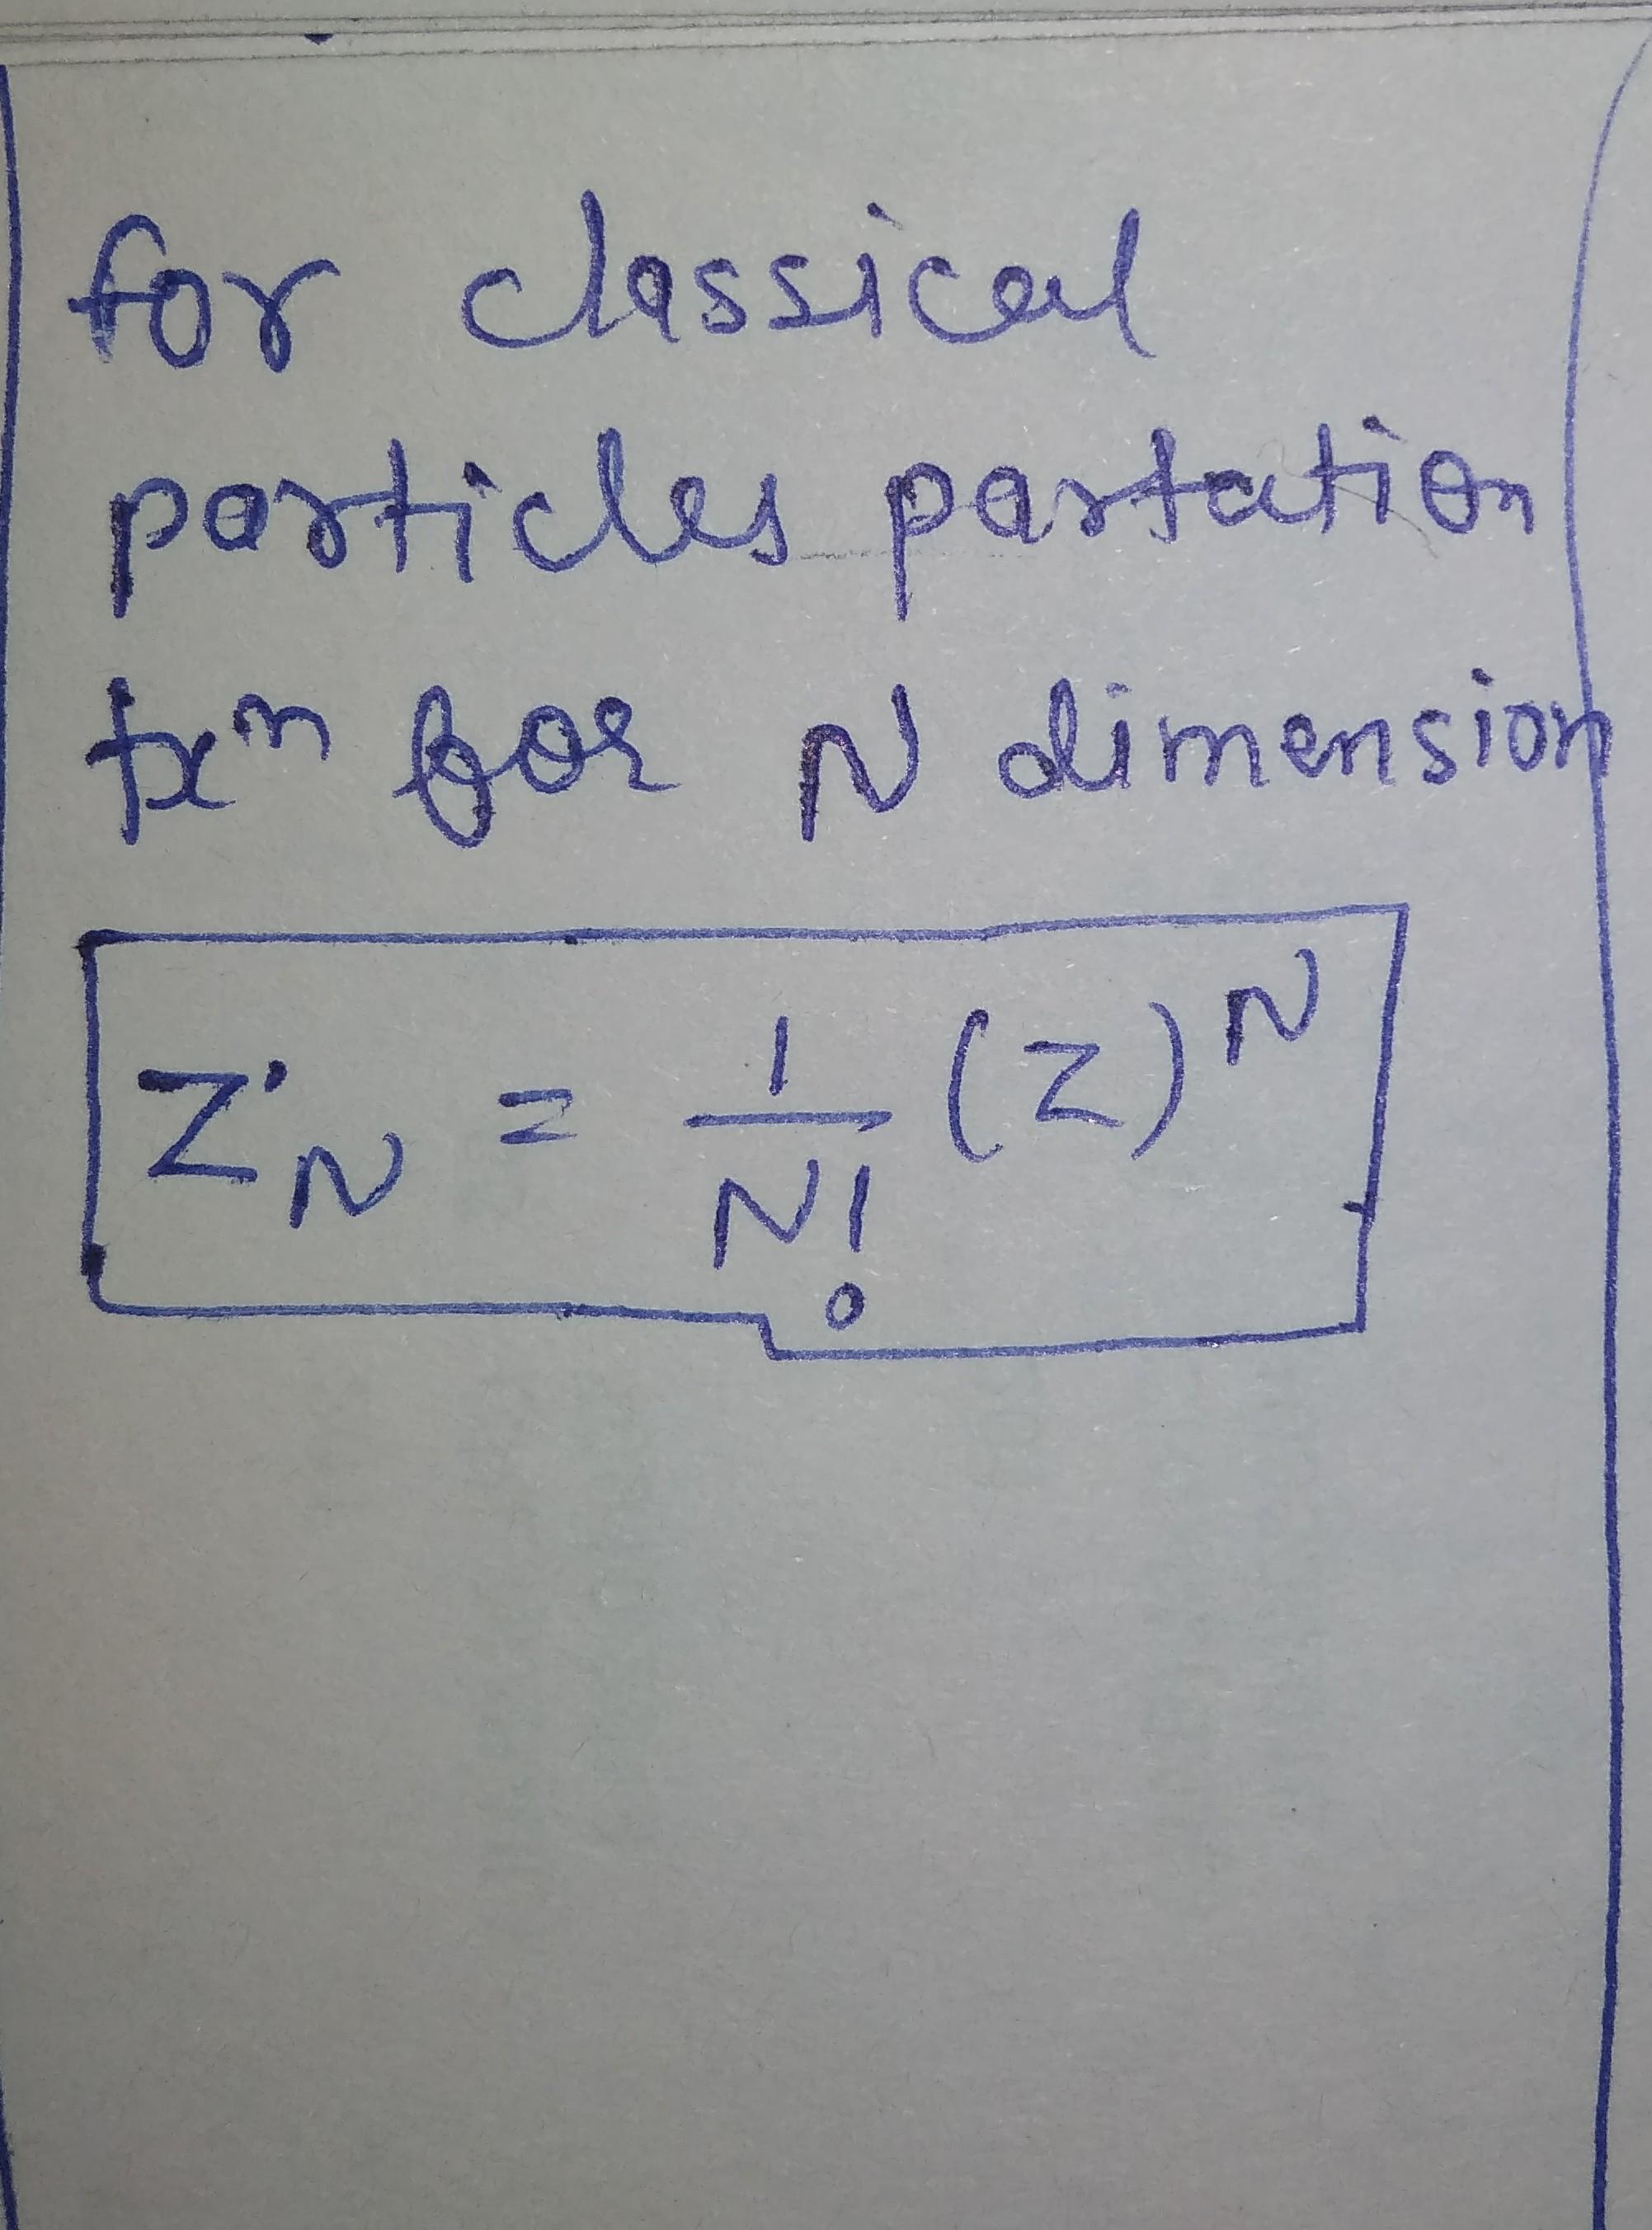 for classical
particles partation
fxⁿ for N dimension
Z'N = 1/N! (Z)^N